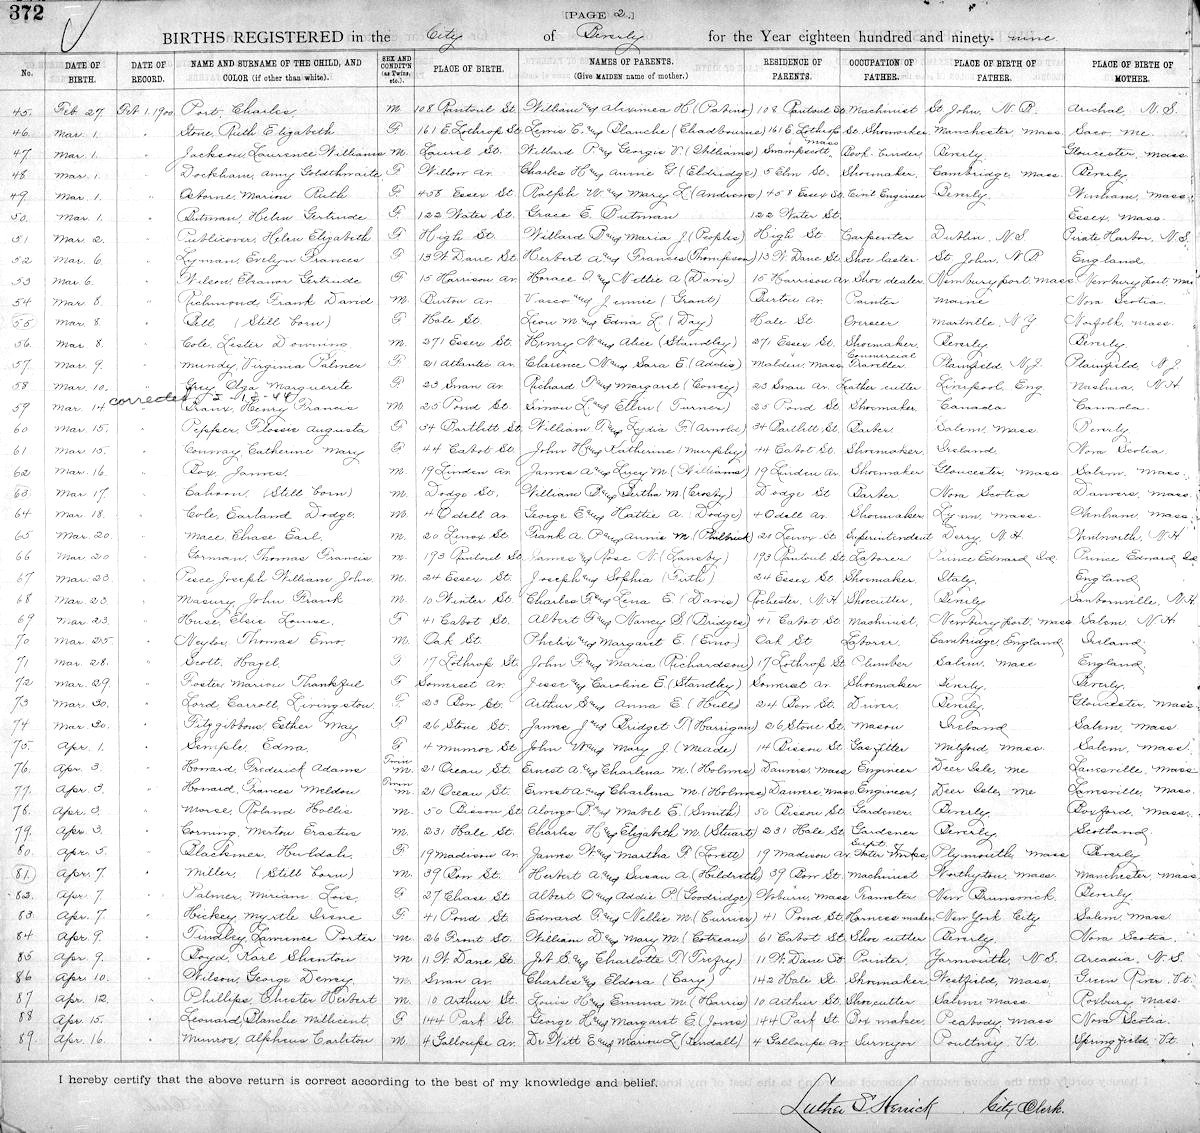 372
[PAGE 2.]
BIRTHS REGISTERED in the City of Beverly for the Year eighteen hundred and ninety-nine
No. DATE OF BIRTH. DATE OF RECORD. NAME AND SURNAME OF THE CHILD, AND COLOR (if other than white). SEX AND CONDIT'N (as Twins, etc.) PLACE OF BIRTH. NAMES OF PARENTS. (Give MAIDEN name of mother.) RESIDENCE OF PARENTS. OCCUPATION OF FATHER. PLACE OF BIRTH OF FATHER. PLACE OF BIRTH OF MOTHER.
45. Feb. 27. Feb 1. 1900 Port, Charles, M. 108 Rantoul St. William and H (Patino) 108 Rantoul St Machinist St John, N.B. Arichal, N.S.
46. Mar. 1. " Stone, Ruth Elizabeth F. 161 E. Lothrop St. Lewis C. and Blanche (Chadbourne) 161 E. Lothrop St. Shoemaker Manchester, Mass. Saco, Me.
47 Mar. 1. " Jackson, Laurence Williams M. Laurel St. Willard P. and Georgie V. (Williams) Swampscott, Mass Book-binder Beverly Gloucester, Mass.
48 Mar. 1. " Dockham, Amy Goldthwaite F Willow Av. Charles H. and Annie G (Eldridge) 5 Elm St. Shoemaker, Cambridge, Mass Beverly.
49. Mar. 1. " Osborne, Marion Ruth F. 458 Essex St. Ralph W. and Mary L. (Andrews) 458 Essex St. Civil Engineer Beverly. Wenham, Mass.
50. Mar. 1. " Putman, Helen Gertrude F. 122 Water St. Grace E. Putman 122 Water St. Essex, Mass.
51 Mar. 2. " Publicover, Helen Elizabeth F High St. Willard P. and Maria J. (Peoples) High St. Carpenter Dublin, N.S. Pirate Harbor, N.S.
52 Mar. 6. " Lyman, Evelyn Frances F. 13 W. Dane St. Herbert A. and Frances (Thompson) 13 W. Dane St. Shoe laster St. John, N.B England
53 Mar. 6. " Wilson, Eleanor Gertrude F. 15 Harrison Av. Horace A. and Nettie A (Davis) 15 Harrison Av. Shoe dealer Newburyport, Mass Newburyport, Mass
54 Mar. 8. " Richmond, Frank David M. Burton Av. Vasco and Jennie (Grant) Burton Av. Painter Maine Nova Scotia.
55 Mar. 8. " Bell, (Still born) F Hale St. Leon M. and Edna L. (Day) Hale St. Overseer N.Y Norfolk, Mass.
56. Mar. 8 " Cole, Lester Downing M. 271 Essex St. Henry N. and Alice (Standley) 271 Essex St. Shoemaker, Beverly Beverly.
57. Mar. 9. " Mundy, Virginia Palmer F. 21 Atlantic Av. Clarence N. and Sara E. (Addis) Malden, Mass Commercial Traveller Plainfield, N.J. Plainfield, N.J.
58 Mar. 10, " Grey Olga Marguerite F. 23 Swan Av. Richard P. and Margaret (Coney) 23 Swan Av. Leather cutter Liverpool, Eng Nashua, N.H
corrected 5-13-44
59 Mar. 14 " Henry Francis M. 25 Pond St. Simon L. and Ellen (Turner) 25 Pond St. Shoemaker Canada Canada.
60 Mar. 15. " Pepper, Flossie Augusta F. 34 Bartlett St. William T. and Lydia F. (Arnold) 34 Bartlett St. Barber Salem, Mass. Beverly
61 Mar. 15. " Conway Catherine Mary F. 44 Cabot St. John H. and Katherine (Murphy) 44 Cabot St. Shoemaker. Ireland. Nova Scotia.
62 Mar. 16. " Cox James. M. 19 Linden Av. James A. and Lucy M. (Williams) 19 Linden Av. Shoemaker Gloucester, Mass. Salem, Mass.
63 Mar. 17 " Cahoon, (Still born) M. Dodge St. William B. and Bertha M. (Crosby) Dodge St Barber Nova Scotia Danvers, Mass.
64 Mar. 18. " Cole, Earland Dodge. M. 4 Odell Av. George E. and Hattie A. (Dodge) 4 Odell Av. Shoemaker Lynn, Mass. Wenham, Mass.
65 Mar. 20. " Mace, Chase Earl. M. 20 Lenox St. Frank A. P. and Annie M. (Philbrick) 21 Lenox St. Superintendent Derry, N.H. Wentworth, N.H
66 Mar. 20 " Gorman, Thomas Francis M. 193 Rantoul St. James and Rose N. (Lansby) 193 Rantoul St. Laborer Prince Edward Isd. Prince Edward Isd
67 Mar. 23. " Pisce Joseph William John. M. 24 Essex St. Joseph and Sophia (Frith) 24 Essex St. Shoemaker. Italy. England
68 Mar. 23. " Masury, John Frank M. 10 Winter St. Charles F. and Lena E. (Davis) Rochester, N.H. Shoecutter, Beverly Sanbornville, N.H.
69 Mar. 23 " Huse, Elsie Louise, F. 41 Cabot St. Albert F. and Nancy S. (Bridges) 41 Cabot St. Machinist, Newburyport, Mass Salem, N.H
70 Mar. 25 " Neylor, Thomas Emo. M. Oak St. Phelix and Margaret E. (Emo) Oak St Laborer Cambridge, England Ireland
71 Mar. 28. " Scott, Hazel. F 17 Lothrop St. John F. and Maria (Richardson) 17 Lothrop St Plumber Salem, Mass England
72 Mar. 29. " Foster Marion Thankful F Somerset Av. Jesse and Caroline E. (Standley) Somerset Av. Shoemaker Beverly. Beverly.
73 Mar. 30. " Lord Carroll Livingston. F. 23 Bow St. Arthur S. and Anna E. (Hull) 24 Bow St. Driver, Beverly. Gloucester, Mass
74 Mar. 30. " Fitzgibbons Esther May F 26 Stone St. James J. and Bridget T. (Harrigan) 26 Stone St. Mason Ireland Salem, Mass.
75. Apr. 1. " Semple, Edna, F 4 Munroe St. John W. and Mary J. (Meade) 14 Bisson St. Gasfitter Milford, Mass. Salem, Mass.
76. Apr. 3. " Howard, Frederick Adams Twin M. 21 Ocean St. Ernest A. and Charlena M. (Holmes) Danvers, Mass Engineer Deer Isle, Me Lanesville, Mass.
77. Apr. 3. " Howard, Frances Weldon Twin M. 21 Ocean St. Ernest A. and Charlena M. (Holmes) Danvers, Mass Engineer, Deer Isle, Me Lanesville, Mass.
78. Apr. 3. " Morse, Roland Hollis M. 50 Bisson St. Alonzo B. and Mabel E. (Smith) 50 Bisson St. Gardener. Beverly. Boxford, Mass.
79. Apr. 3. " Corning, Merton Erastus M. 231 Hale St. Charles H. and Elizabeth M. (Stuart) 231 Hale St. Gardener Beverly. Scotland
80. Apr. 5. " Blackmer, Huldah. F 19 Madison Av. James W. and Martha P. (Lovett) 19 Madison Av. Supt. Water Works, Plymouth, Mass Beverly
81. Apr. 7. " Miller, (Still born) M. 39 Bow St. Herbert A. and Susan A. (Hildreth) 39 Bow St. Machinist Worthyton, Mass. Manchester, Mass
83. Apr. 7 " Palmer, Miriam Lois, F 27 Chase St. Albert O. and Addie P. (Goodridge) Woburn, Mass Teamster New Brunswick. Beverly.
83 Apr. 7. " Hickey, Myrtle Irene F. 41 Pond St. Edward F. and Nellie M. (Currier) 41 Pond St. Harness maker, New York City Salem, Mass.
84 Apr. 9. " Tindley, Lawrence Porter M. 26 Front St. William D. and Mary M. (Cotreau) 61 Cabot St. Shoe cutter Beverly. Nova Scotia.
85 Apr. 9. " Boyd, Karl Shenton M 11 W. Dane St. Job S. and Charlotte N. Trefry) 11 W. Dane St Painter, Yarmouth, N.S. Arcadia, N.S.
86 Apr. 10. " Wilson, George Dewey, M. Swan Av. Charles and Eldora (Cary) 142 Hale St Shoemaker, Westfield, Mass. Green River, Vt.
87 Apr. 12. " Phillips, Chester Herbert M. 10 Arthur St. Louis H. and Emma M. (Harris) 10 Arthur St. Shoecutter Salem Mass. Roxbury Mass.
88 Apr. 15. " Leonard, Blanche Millicent F 144 Park St. George H. and Margaret E. (Jones) 144 Park St. Box maker, Peabody, Mass Nova Scotia.
89. Apr. 16. " Munroe, Alpheus Carleton M. 4 Galloupe Av. De Witt E. and Marion L. (Kendall) 4 Galloupe Av Surveyor Poultney, Vt. Springfield, Vt.
I hereby certify that the above return is correct according to the best of my knowledge and belief.
Luther S. Herrick City Clerk.